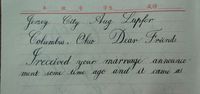 Jersey City Aug Lupfer
Columbus, Ohio Dear Friend:
I received your marriage announce
ment some time ago and it came as